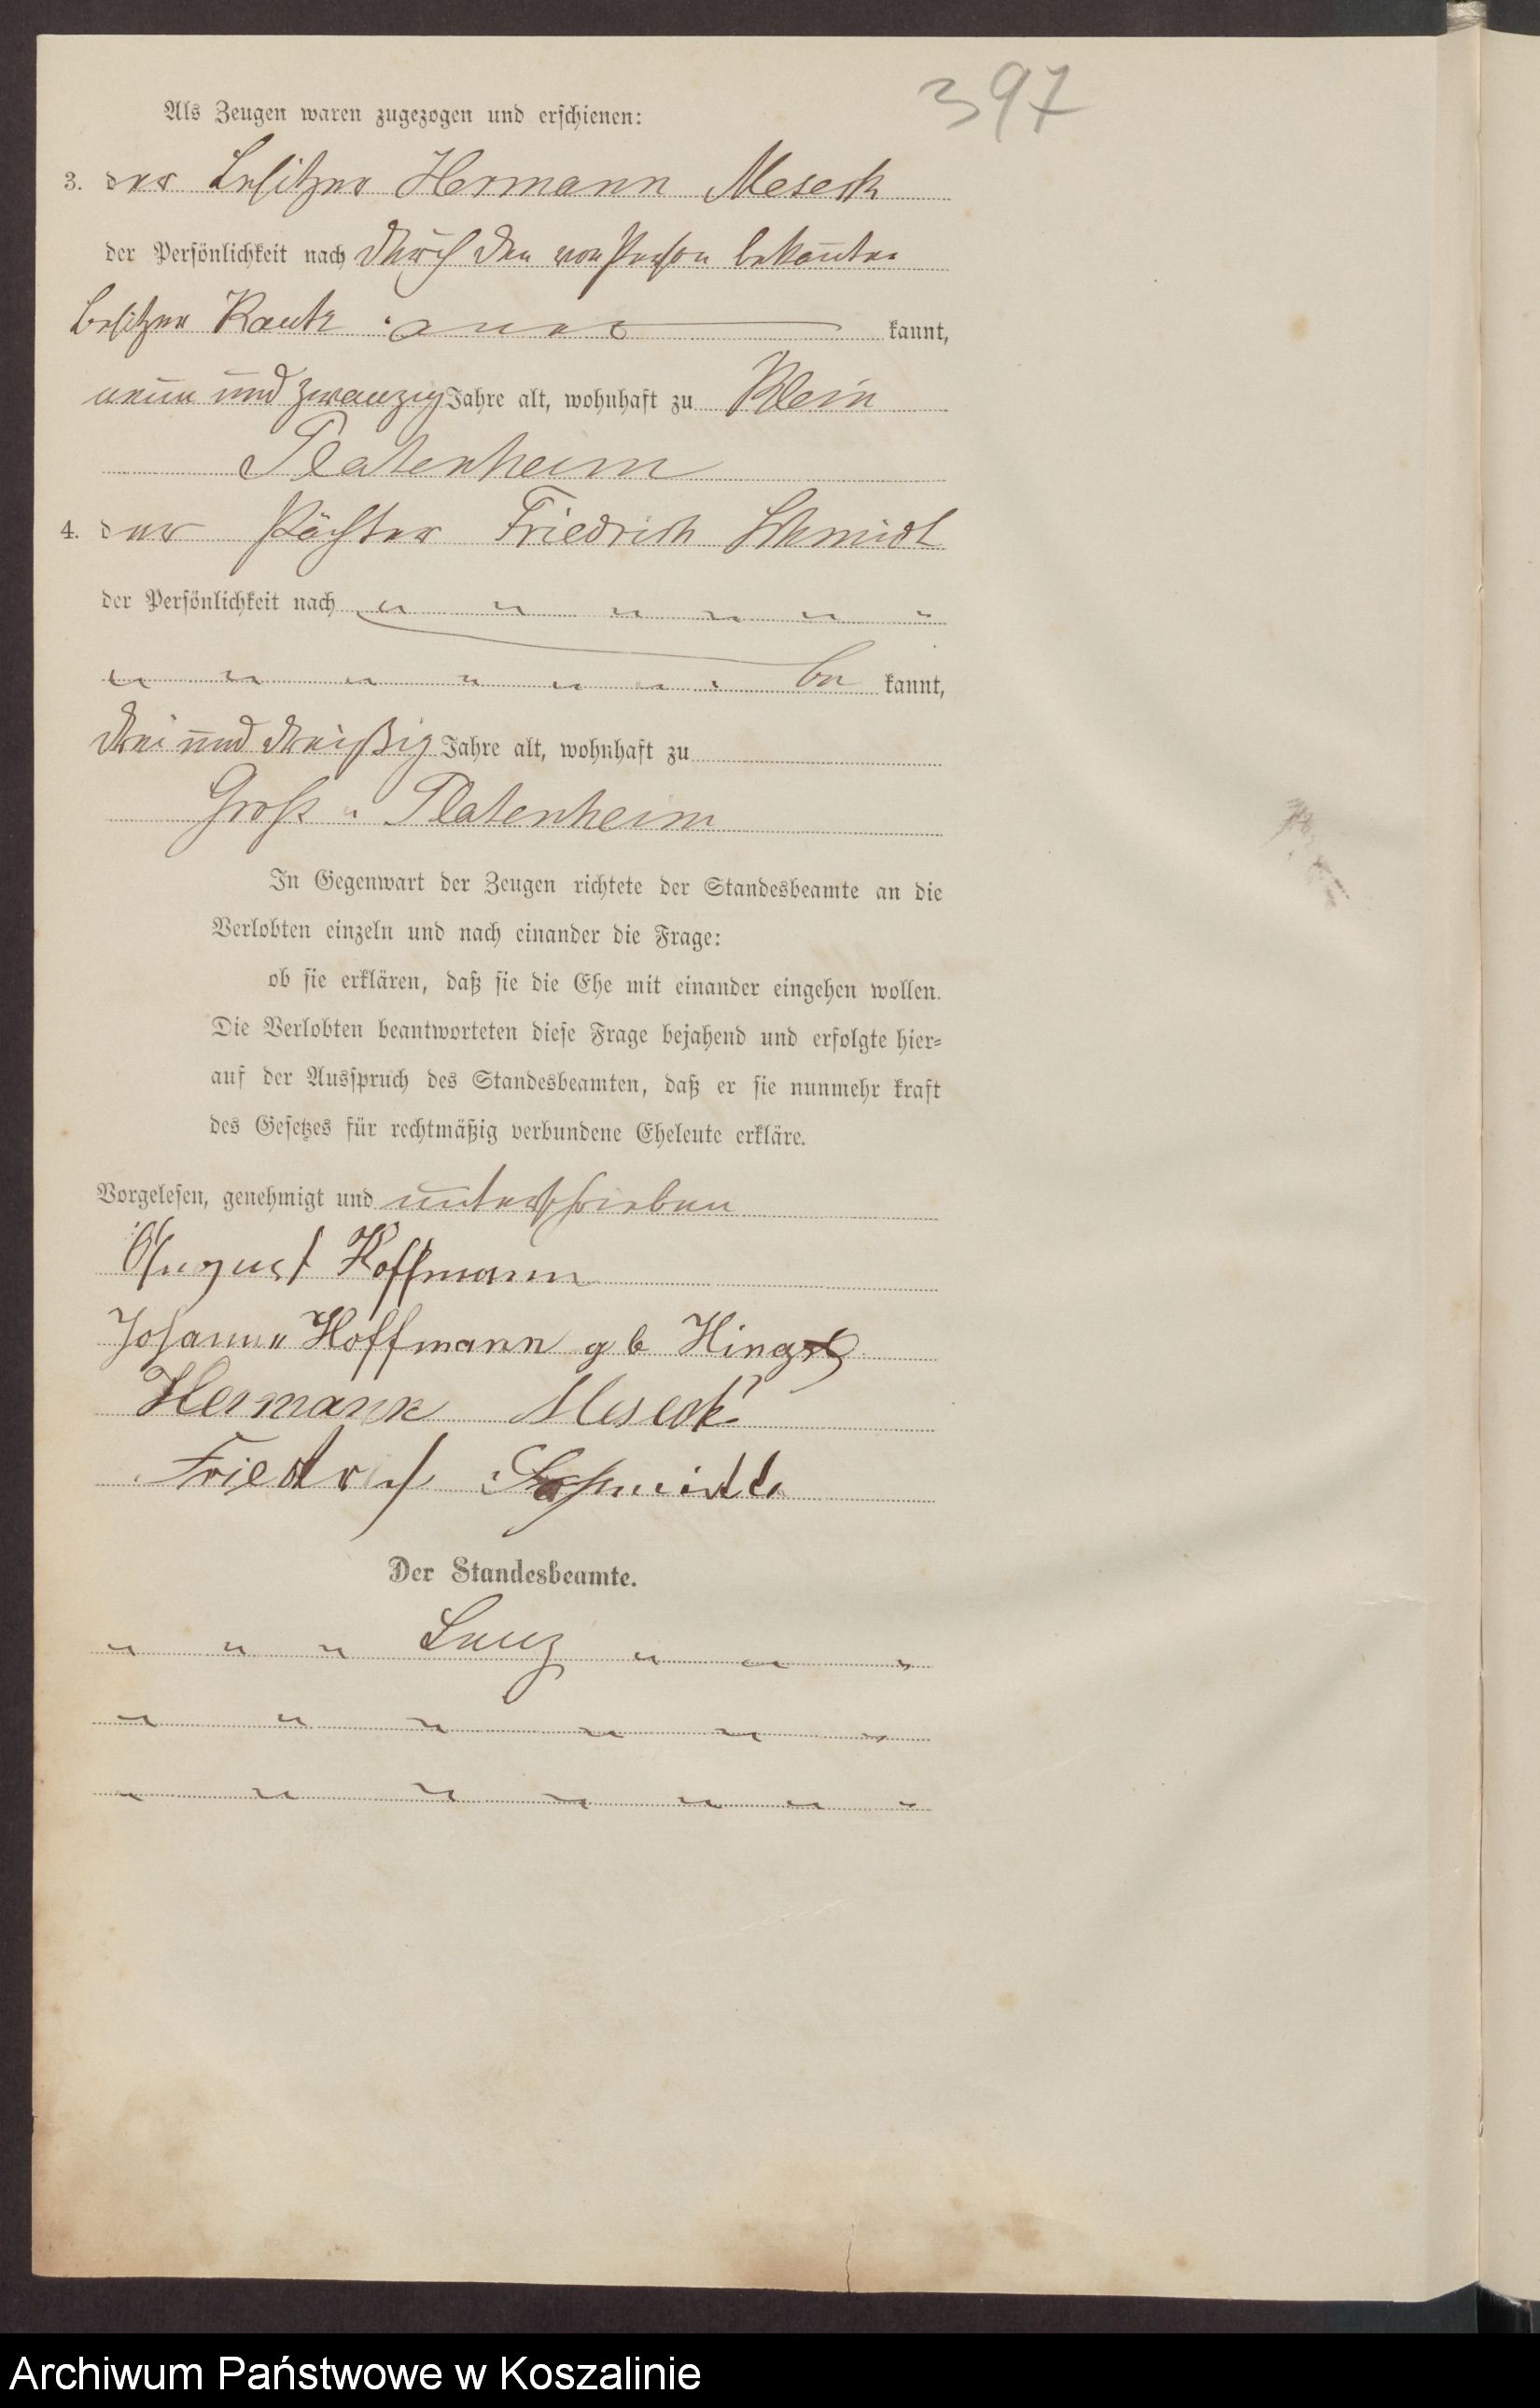 397
Als Zeugen waren zugezogen und erschienen:
3. der Besitzer Hermann Meseck
der Persönlichkeit nach durch den von Person bekannten
Besitzer Rautz aner kannt,
neun und zwanzig Jahre alt, wohnhaft zu Klein
Platenheim
4. der Pächter Friedrich Schmidt
der Persönlichkeit nach
be kannt,
drei und dreißig Jahre alt, wohnhaft zu
Groß Platenheim
In Gegenwart der Zeugen richtete der Standesbeamte an die
Verlobten einzeln und nach einander die Frage:
ob sie erklären, daß sie die Ehe mit einander eingehen wollen.
Die Verlobten beantworteten diese Frage bejahend und erfolgte hier-
auf der Ausspruch des Standesbeamten, daß er sie nunmehr kraft
des Gesetzes für rechtmäßig verbundene Eheleute erkläre.
Vorgelesen, genehmigt und unterschrieben
August Hoffmann
Johanne Hoffmann gb Hingst
Hermann Meseck
Friedrich Schmidt
Der Standesbeamte.
Archiwum Państwowe w Koszalinie